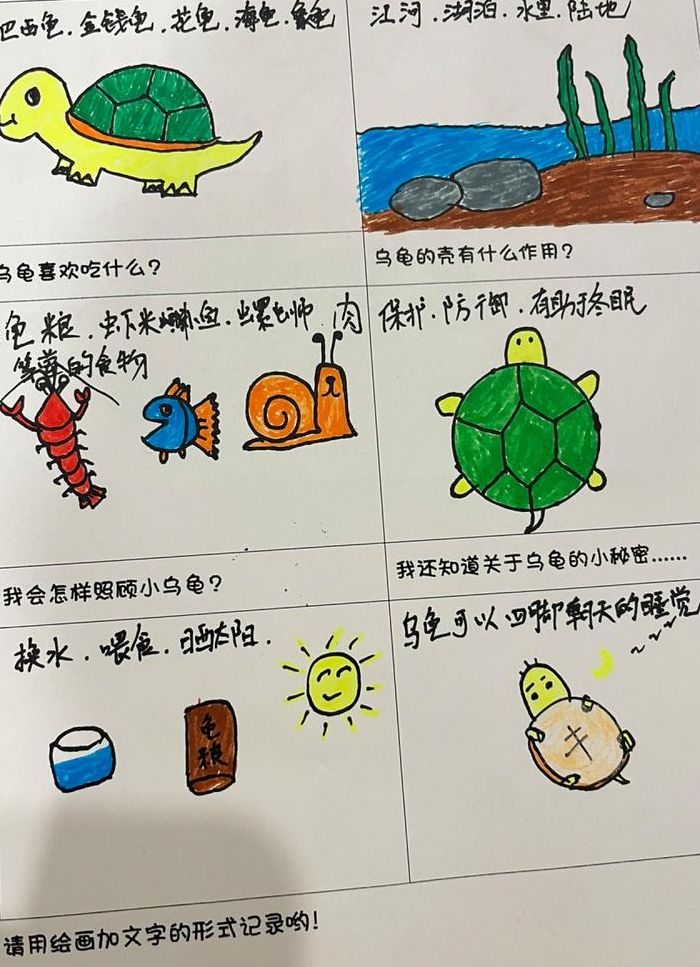 巴西龟.金钱龟.花龟.海龟.鳄龟
江河.湖泊.水里.陆地
乌龟喜欢吃什么？
乌龟的壳有什么作用？
龟粮.虾米 鱼.螺蛳.肉
等 的食物
保护.防御.有助于冬眠
我会怎样照顾小乌龟？
我还知道关于乌龟的小秘密……
换水.喂食.晒太阳.
乌龟可以四脚朝天的睡觉
龟粮
请用绘画加文字的形式记录哟！